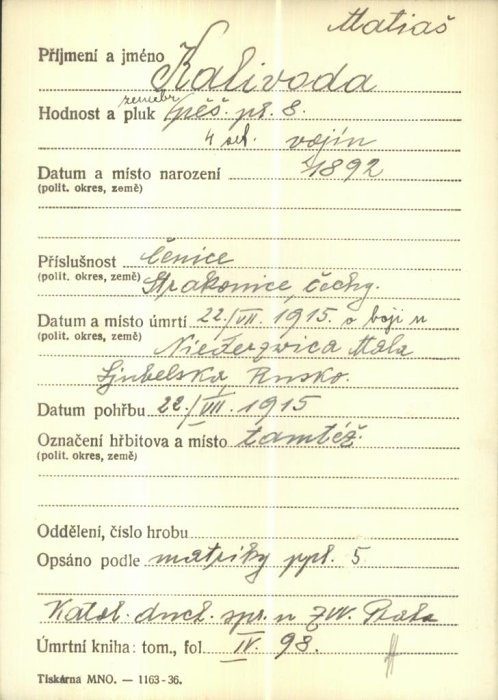 Matiaš
Příjmení a jméno Kalivoda
zeměbr.
Hodnost a pluk pěš. pl. 8.
4 set. vojín
Datum a místo narození 1892
(polit. okres, země)
Příslušnost Čenice
(polit. okres, země) Strakonice, Čechy.
Datum a místo úmrtí 22./VII. 1915. v boji u
(polit. okres, země) Niedergwica Mala
Ljubelska, Rusko.
Datum pohřbu 22./VII. 1915
Označení hřbitova a místo tamtéž.
(polit. okres, země)
Oddělení, číslo hrobu
Opsáno podle matriky ppl. 5.
Katol. duch. spr. u ZVV. Praha
Úmrtní kniha: tom., fol IV. 98.
Tiskárna MNO. — 1163-36.